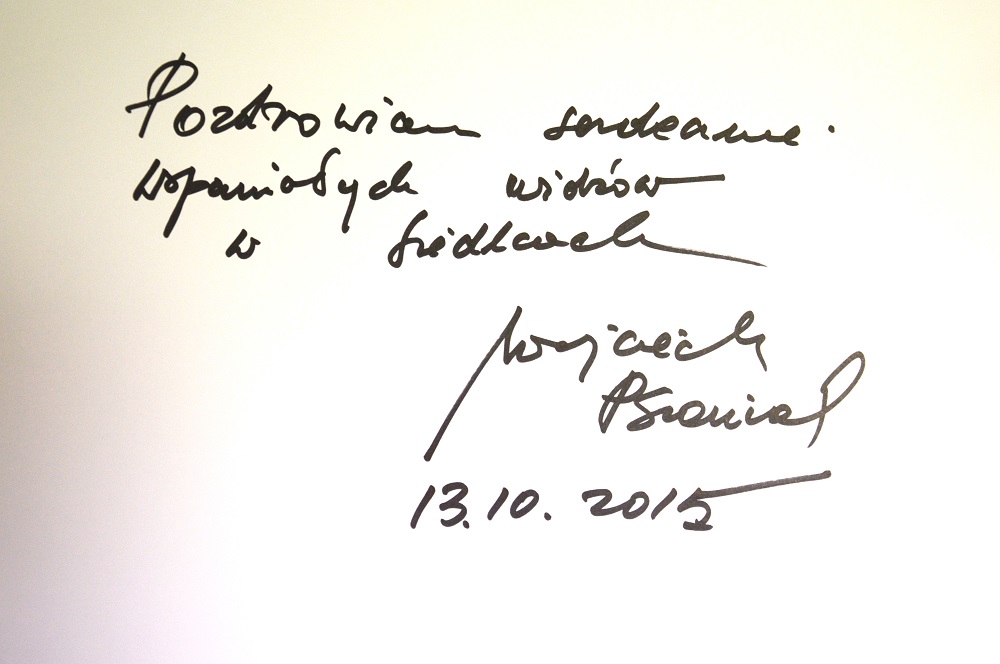 Pozdrowiam serdecznie
wspaniałych widzów
w Siedlcach
Wojciech
Pszoniak
13.10.2015